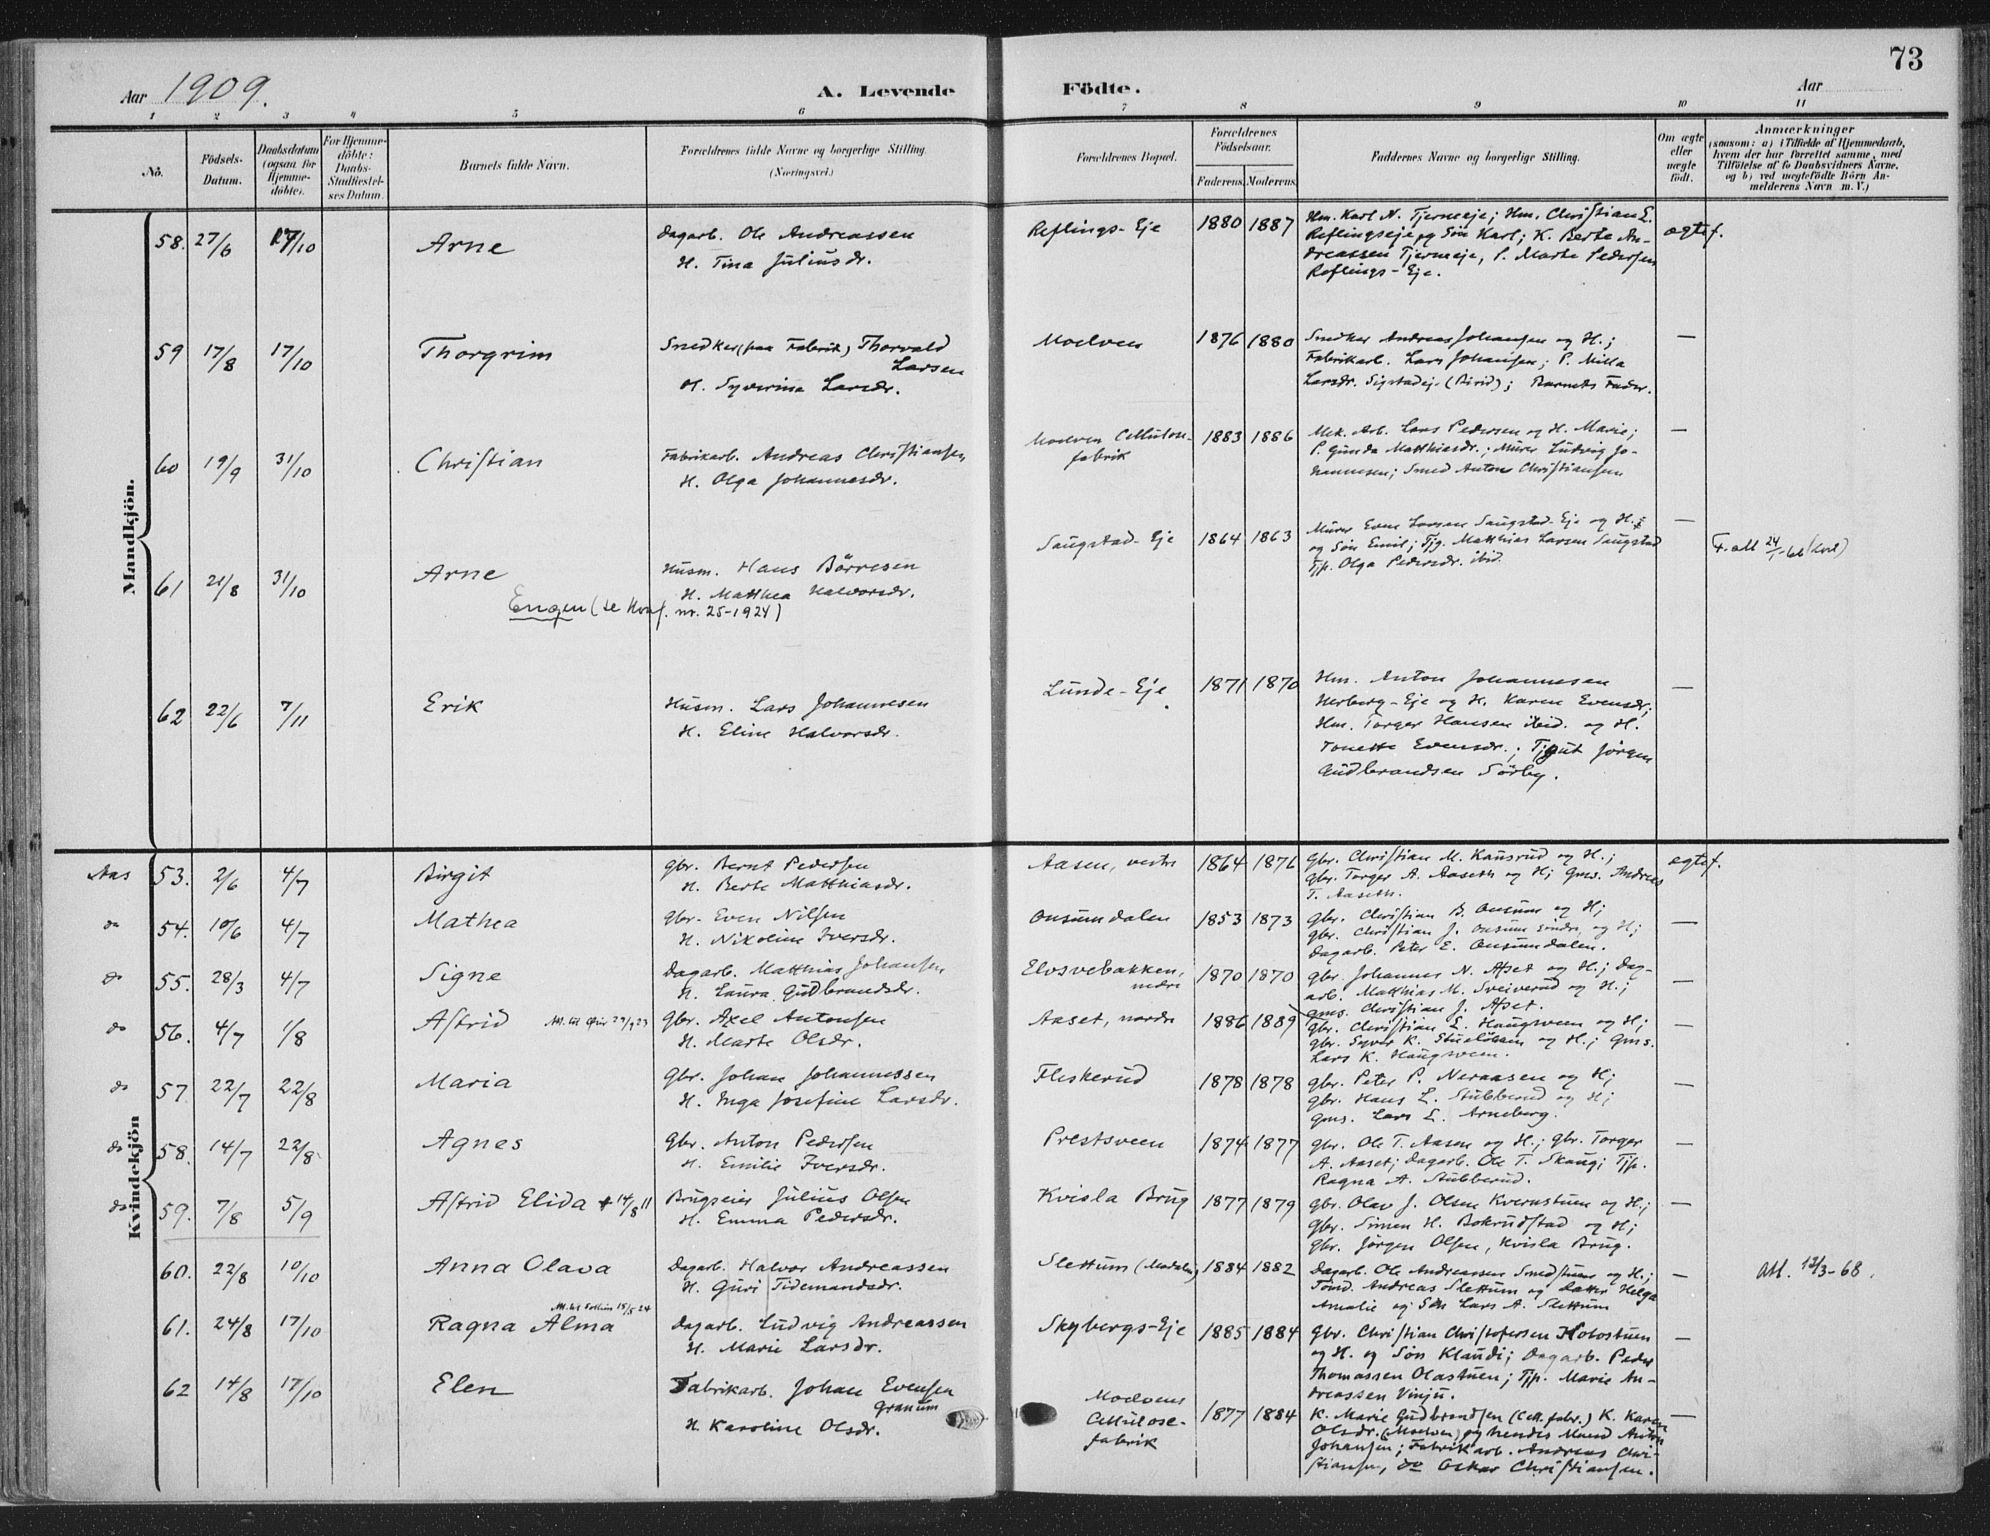 73
Aar 1909.
A. Levende Födte.
Aar
1 2 3 4 5 6 7 8 9 10 11
No.
Födsels-Datum.
Daabsdatum (ogsaa for Hjemme-döbte).
For Hjemme-döbte: Daabs-Stadfæstel-ses Datum.
Barnets fulde Navn.
Forældrenes fulde Navne og borgerlige Stilling. (Næringsvei.)
Forældrenes Bopæl.
Forældrenes Födselsaar.
Faderens. Moderens.
Faddernes Navne og borgerlige Stilling.
Om ægte eller uægte födt.
Anmærkninger
(saasom: a) i Tilfælde af Hjemmedaab, hvem der har forrettet samme, med Tilföielse af to Daabsvidners Navne, og b) ved uægtefödte Börn An-melderens Navn m. V.)
Mandkjön.
58. 27/6 17/10 Arne
Dagarb. Ole Andreassen
H. Tina Juliusdr.
Reflings-Eje 1880 1887
Hm. Karl N. Tjerneeje; Hm. Christian E.
Reflingseje og Søn Karl; K. Berte An-
dreassen Tjerneeje, P. Marte Pedersen
Reflings-Eje.
ægtef.
59 17/8 17/10 Thorgrim
Snedker (paa Fabrik) Thorvald
Larsen
H. Syverine Larsdr.
Moelven 1876 1880
Snedker Andreas Johansen og H.;
Fabrikarb. Lars Johansen; P. Milla
Larsdr. Sigstadej. (Birid); Barnets Fader.
—
60 19/9 31/10 Christian
Fabrikarb. Andreas Christiansen
H. Olga Johannesdr.
Moelven Cellulose-
fabrik 1883 1886
Mek. Arb. Lars Pedersen og H. Marie;
P. Gunda Matthiasdr.; Murer Ludvig Jo-
hannesen; Smed Anton Christiansen
—
61 21/8 31/10 Arne
Engen (se Konf. nr. 25-1924)
Husm. Hans Börresen
H. Matthea Halvorsdr.
Saugstad-Eje 1864 1863
Murer Even Larsen Saugstad-Eje og H.;
og Søn Emil; Tjg. Matthias Larsen Saugstad
Tjp. Olga Pedersdr. ibid.
—
F. att 24/1-66
62 22/6 7/11 Erik
Husm. Lars Johannesen
H. Eline Halvorsdr.
Lunde-Eje 1871 1870
Hm. Anton Johannesen
Herberg-Eje og H. Karen Evensdr;
Hm. Torger Hansen ibid. og H.
Tonette Evensdr.; Tjgut Jörgen
Gudbrandsen Sörby.
—
Kvindekjön
Aas 53. 2/6 4/7 Birgit
Gbr. Bernt Pedersen
H. Berte Matthiasdr.
Aasen, vestre 1864 1876
Gbr. Christian M. Kausrud og H.;
Gbr. Torger A. Aaseth og H; Gms. Andreas
T. Aaseth.
ægtef.
do 54. 10/6 4/7 Mathea
Gbr. Even Nilsen
H. Nikoline Iversdr.
Onsumdalen 1853 1873
Gbr. Christian B. Onsum og H;
Gbr. Christian J. Onsum söndre og H;
Dagarb. Peter E. Onsumdalen.
—
do 55. 28/3 4/7 Signe
Dagarb. Matthias Johansen
H. Laura Gudbrandsdr.
Elvsvebakken,
nedre 1870 1870
Gbr. Johannes N. Afset og H.; Dag-
arb. Matthias M. Sveiverud og H.;
Gms. Christian J. Afset.
—
do 56. 4/7 1/8 Astrid
Gbr. Axel Antonsen
H. Marte Olsdr.
Aaset, nordre 1886 1889
Gbr. Christian L. Haugsveen og H;
Gbr. Syver K. og H.; Gms.
Lars K. Haugsveen.
—
do 57. 22/7 22/8 Maria
Gbr. Johan Johannessen
H. Inga Josefine Larsdr.
Fleskerud 1878 1878
Gbr. Peter P. Neraasen og H;
Gbr. Hans L. Stubberud og H;
Gms. Lars L. Arneberg.
—
do 58. 14/7 22/8 Agnes
Gbr. Anton Pedersen
H. Emilie Iversdr.
Prestsveen 1874 1877
Gbr. Ole T. Aasen og H.; Gbr. Torger
A. Aaset; Dagarb. Ole T. Skaug; Tjp.
Ragna A. Stubberud.
—
do 59. 7/8 5/9 Astrid Elida + 14/8 11
Brugseier Julius Olsen
H. Emma Pedersdr.
Kvisla Brug 1877 1879
Gbr. Olav J. Olsen Kvernstuen og H.;
Gbr. Simen H. Bokrudstad og H;
Gbr. Jørgen Olsen, Kvisla Brug.
—
60. 22/8 10/10 Anna Olava
Dagarb. Halvor Andreassen
H. Guri Tidemandsdr.
Slettum 1884 1882
Dagarb. Ole Andreassen Smedstuen og H.;
Tömd. Andreas Slettum og Datter Helga
Amalie og Søn Lars A. Slettum
—
Att. 12/3-68.
61. 24/8 17/10 Ragna Alma
Dagarb. Ludvig Andreassen
H. Marie Larsdr.
Skybergs-Eje 1885 1884
Gbr. Christian Christofersen Holostuen
og H. og Søn Klaudi; Dagarb. Peder
Thomassen Olastuen; Tjp. Marie An-
dreassen Vinju.
—
62 14/8 17/10 Elen
Fabrikarb. Johan Evensen
Granum
H. Karoline Olsdr.
Moelvens
Cellulose-
fabrik 1877 1884
K. Marie Gudbrandsen (Cell.fabr.) K. Karen
Olsdr. (Moelven) og hendes Mand Anton
Johansen; Fabrikarb. Andreas Chri-
stiansen, do Oskar Christiansen.
—